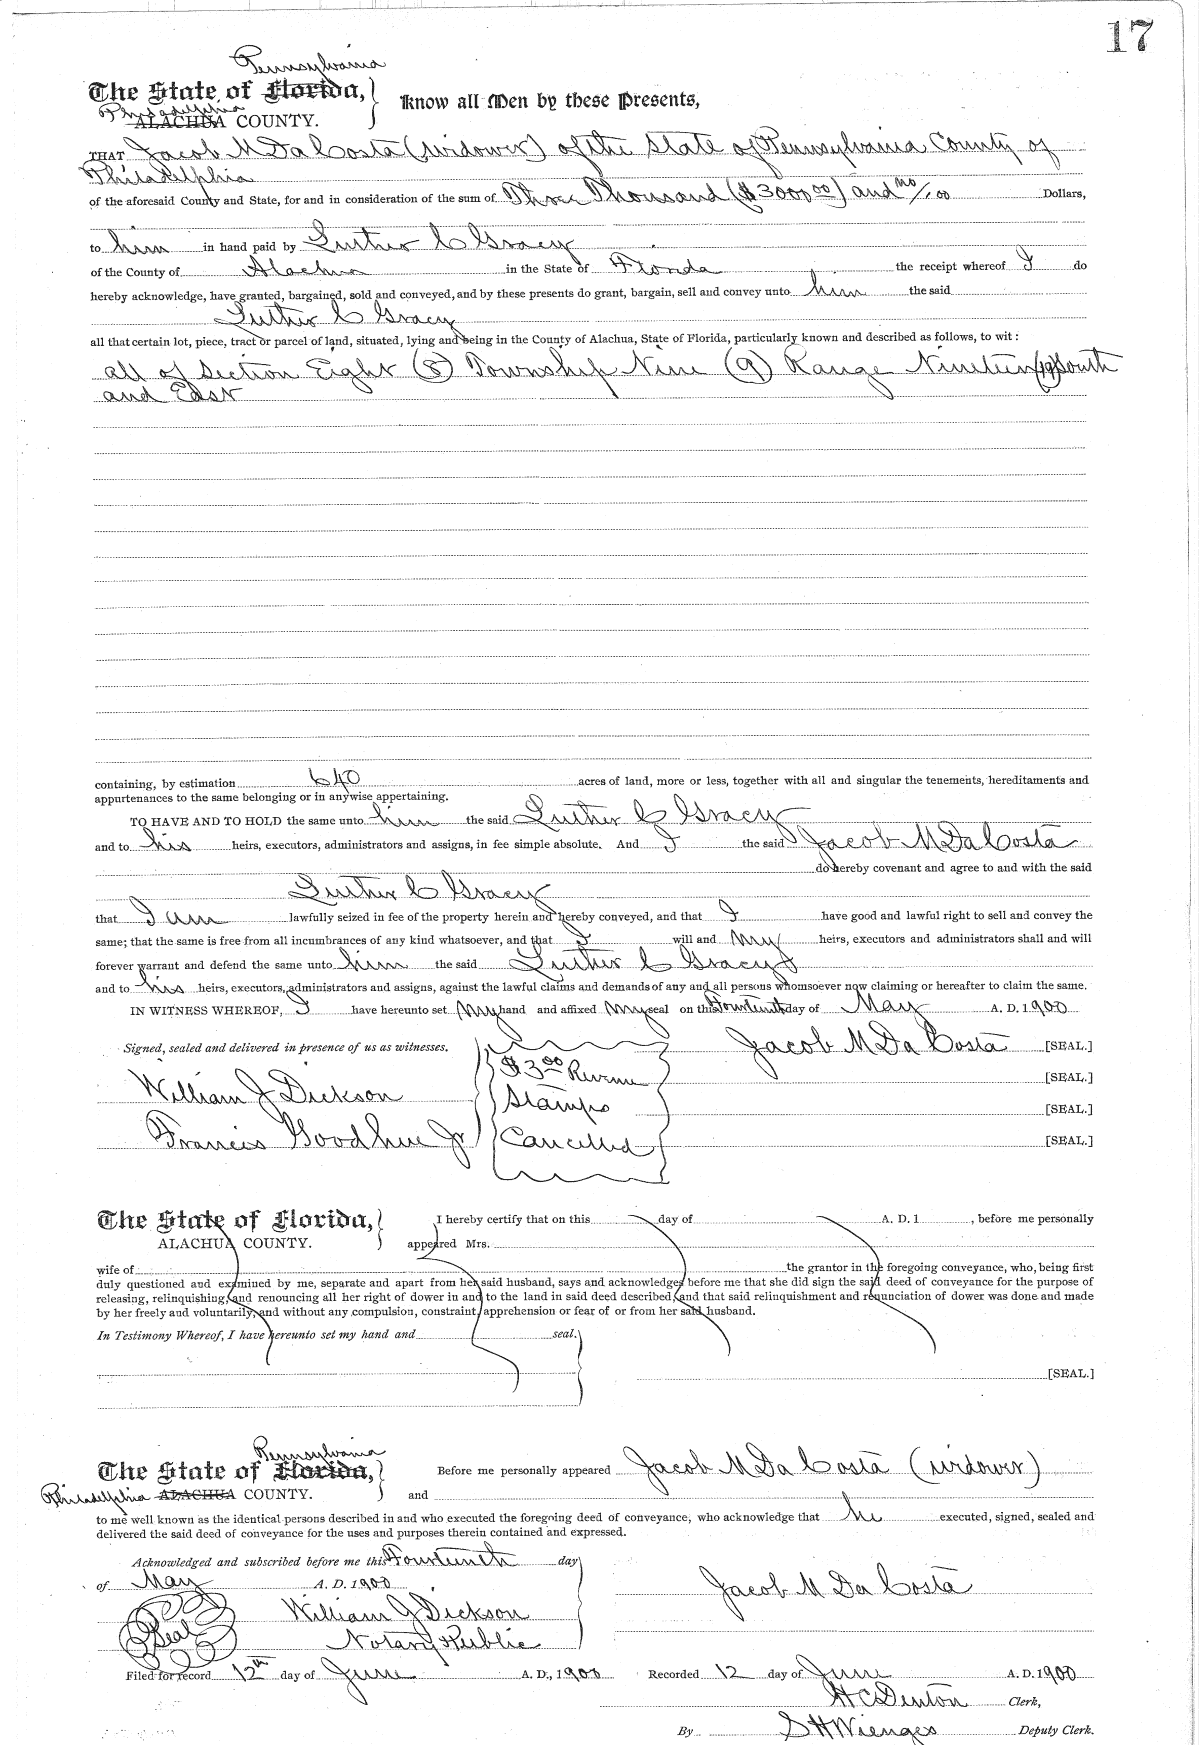 17
Pennsylvania
The State of Florida,
Philadelphia
ALACHUA COUNTY.
Know all Men by these Presents,
THAT Jacob M Da Costa (widower) of the State of Pennsylvania County of
Philadelphia
of the aforesaid County and State, for and in consideration of the sum of Three Thousand ($3000.00) and no/100 Dollars,
to him in hand paid by Luther C Gracy
of the County of Alachua in the State of Florida the receipt whereof I do
hereby acknowledge, have granted, bargained, sold and conveyed, and by these presents do grant, bargain, sell and convey unto him the said
Luther C Gracy
all that certain lot, piece, tract or parcel of land, situated, lying and being in the County of Alachua, State of Florida, particularly known and described as follows, to wit:
all of Section Eight (8) Township Nine (9) Range Nineteen (19) South
and East
containing, by estimation 640 acres of land, more or less, together with all and singular the tenements, hereditaments and
appurtenances to the same belonging or in anywise appertaining.
TO HAVE AND TO HOLD the same unto him the said Luther C Gracy
and to his heirs, executors, administrators and assigns, in fee simple absolute. And I the said Jacob M Da Costa
do hereby covenant and agree to and with the said
Luther C Gracy
that I am lawfully seized in fee of the property herein and hereby conveyed, and that I have good and lawful right to sell and convey the
same; that the same is free from all incumbrances of any kind whatsoever, and that I will and my heirs, executors and administrators shall and will
forever warrant and defend the same unto him the said Luther C Gracy
and to his heirs, executors, administrators and assigns, against the lawful claims and demands of any and all persons whomsoever now claiming or hereafter to claim the same.
IN WITNESS WHEREOF, I have hereunto set my hand and affixed my seal on this Fourteenth day of May A. D. 1900
Signed, sealed and delivered in presence of us as witnesses.
Jacob M Da Costa [SEAL.]
$3.00 Revenue
[SEAL.]
William J Dickson
Stamps
[SEAL.]
Francis Goodhue Jr
Cancelled
[SEAL.]
The State of Florida,
ALACHUA COUNTY.
I hereby certify that on this day of A. D. 1 , before me personally
appeared Mrs.
wife of the grantor in the foregoing conveyance, who, being first
duly questioned and examined by me, separate and apart from her said husband, says and acknowledges before me that she did sign the said deed of conveyance for the purpose of
releasing, relinquishing, and renouncing all her right of dower in and to the land in said deed described, and that said relinquishment and renunciation of dower was done and made
by her freely and voluntarily, and without any compulsion, constraint, apprehension or fear of or from her said husband.
In Testimony Whereof, I have hereunto set my hand and seal.
[SEAL.]
Pennsylvania
The State of Florida,
Philadelphia ALACHUA COUNTY.
Before me personally appeared Jacob M Da Costa (widower)
and
to me well known as the identical persons described in and who executed the foregoing deed of conveyance, who acknowledge that he executed, signed, sealed and
delivered the said deed of conveyance for the uses and purposes therein contained and expressed.
Acknowledged and subscribed before me this Fourteenth day
of May A. D. 1900
Jacob M Da Costa
William J Dickson
Seal
Notary Public
Filed for record 12th day of June A. D., 1900 Recorded 12 day of June A. D. 1900
H C Denton Clerk,
By S H Wienges Deputy Clerk.